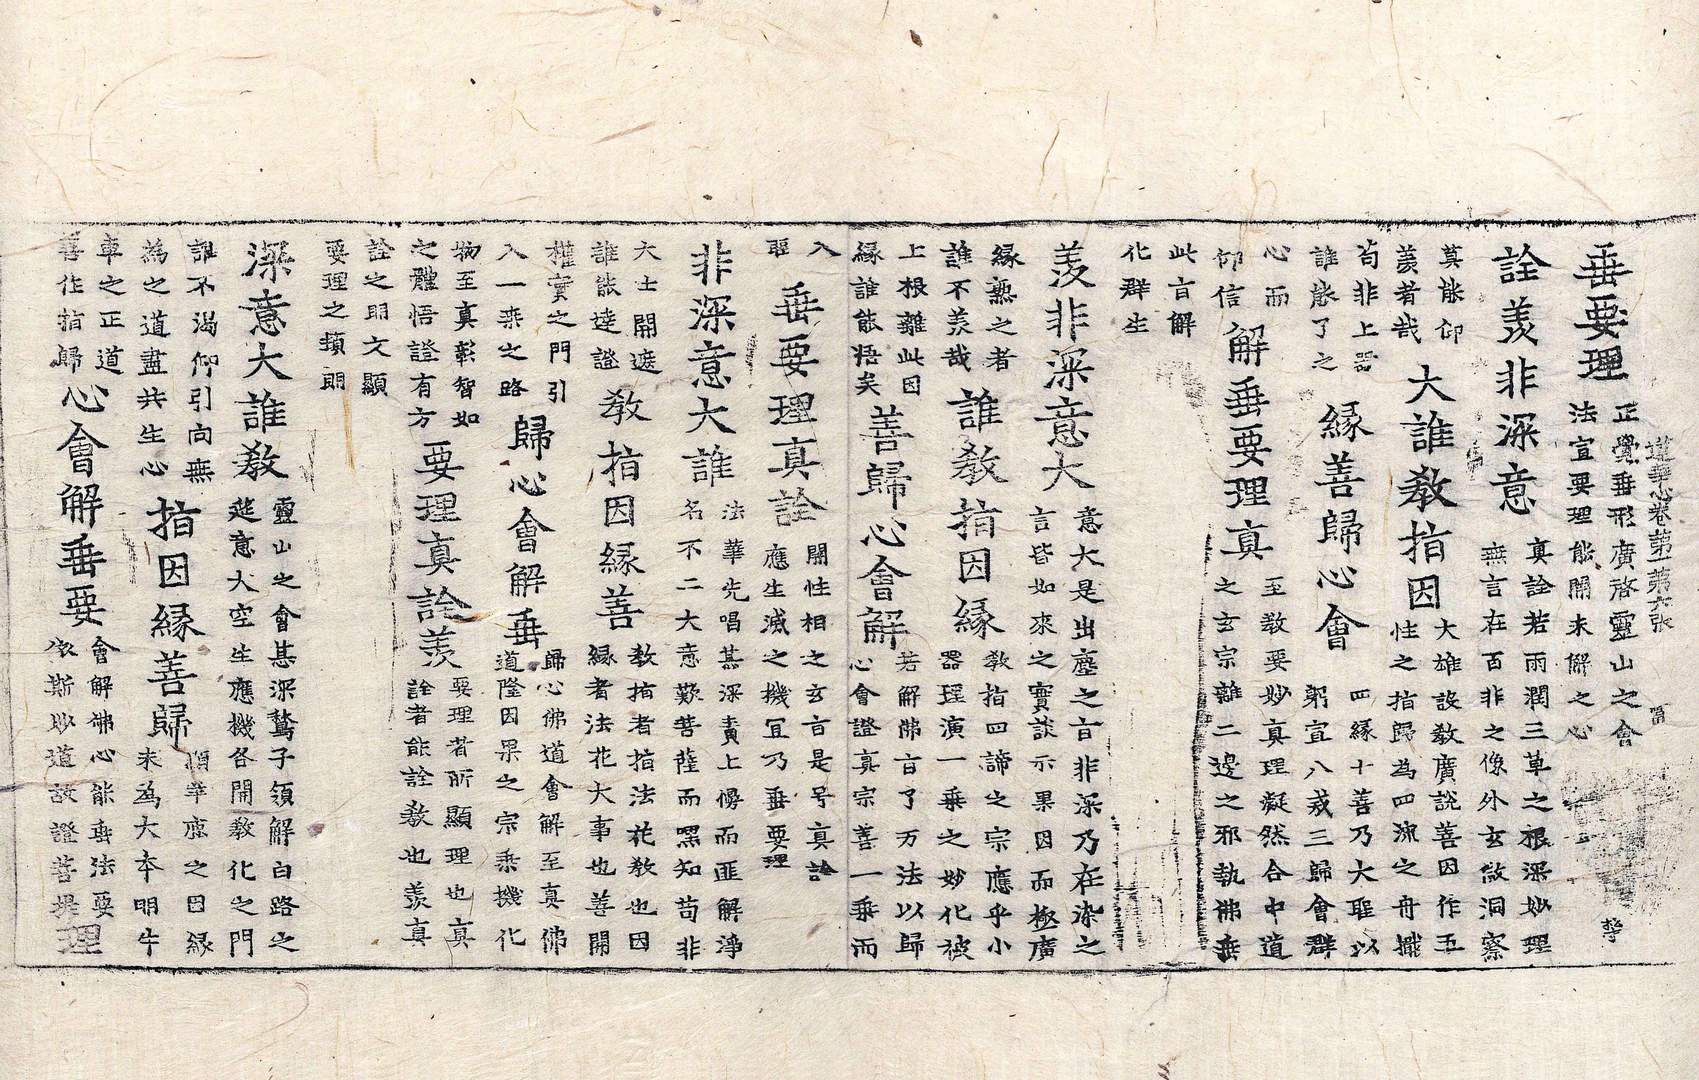 蓮華心卷第一 第六張
垂要理
正覺垂形廣啓靈山之會
法宣要理能開未解之心
詮羨非深意
真詮若雨潤三草之根深妙理
無言在百非之像外玄微洞察
莫能仰
羨者哉
大誰敎指因
大雄設敎廣說善因作五
性之指歸為四流之舟檝
苟非上器
誰能了之
緣善歸心會
四緣十善乃大聖以
躬宣八戒三歸會群
心而
仰信
解垂要理真
至敎要妙真理凝然合中道
之玄宗離二邊之邪執佛垂
此旨解
化群生
羨非深意大
意大是出塵之旨非深乃在染之
言皆如來之實談示果因而極廣
緣熟之者
誰不羨哉
誰敎指因緣
敎指四諦之宗應乎小
器理演一乘之妙化被
上根離此因
緣誰能悟矣
善歸心會解
若解佛旨了万法以歸
心會證真宗善一乘而
入
垂要理真詮
開性相之玄旨是号真詮
應生滅之機宜乃垂要理
非深意大誰
法華先唱甚深責上慢而匪解淨
名不二大意歎菩薩而嘿知苟非
大士開遮
誰能達證
敎指因緣善
敎指者指法花敎也因
緣者法花大事也善開
權實之門引
入一乘之路
歸心會解垂
歸心佛道會解至真佛
道隆因果之宗乘機化
物至真彰智如
之體悟證有方
要理真詮羨
要理者所顯理也真
詮者能詮敎也羨真
詮之明文顯
要理之頻明
深意大誰敎
靈山之會甚深鶖子領解白路之
筵意大空生應機各開敎化之門
誰不渴仰引向無
為之道盡共生心
指因緣善歸
華嚴之因緣
來為大本明牛
車之正道
善作指歸
心會解垂要
會解佛心能垂法要
依斯妙道故證菩提
理